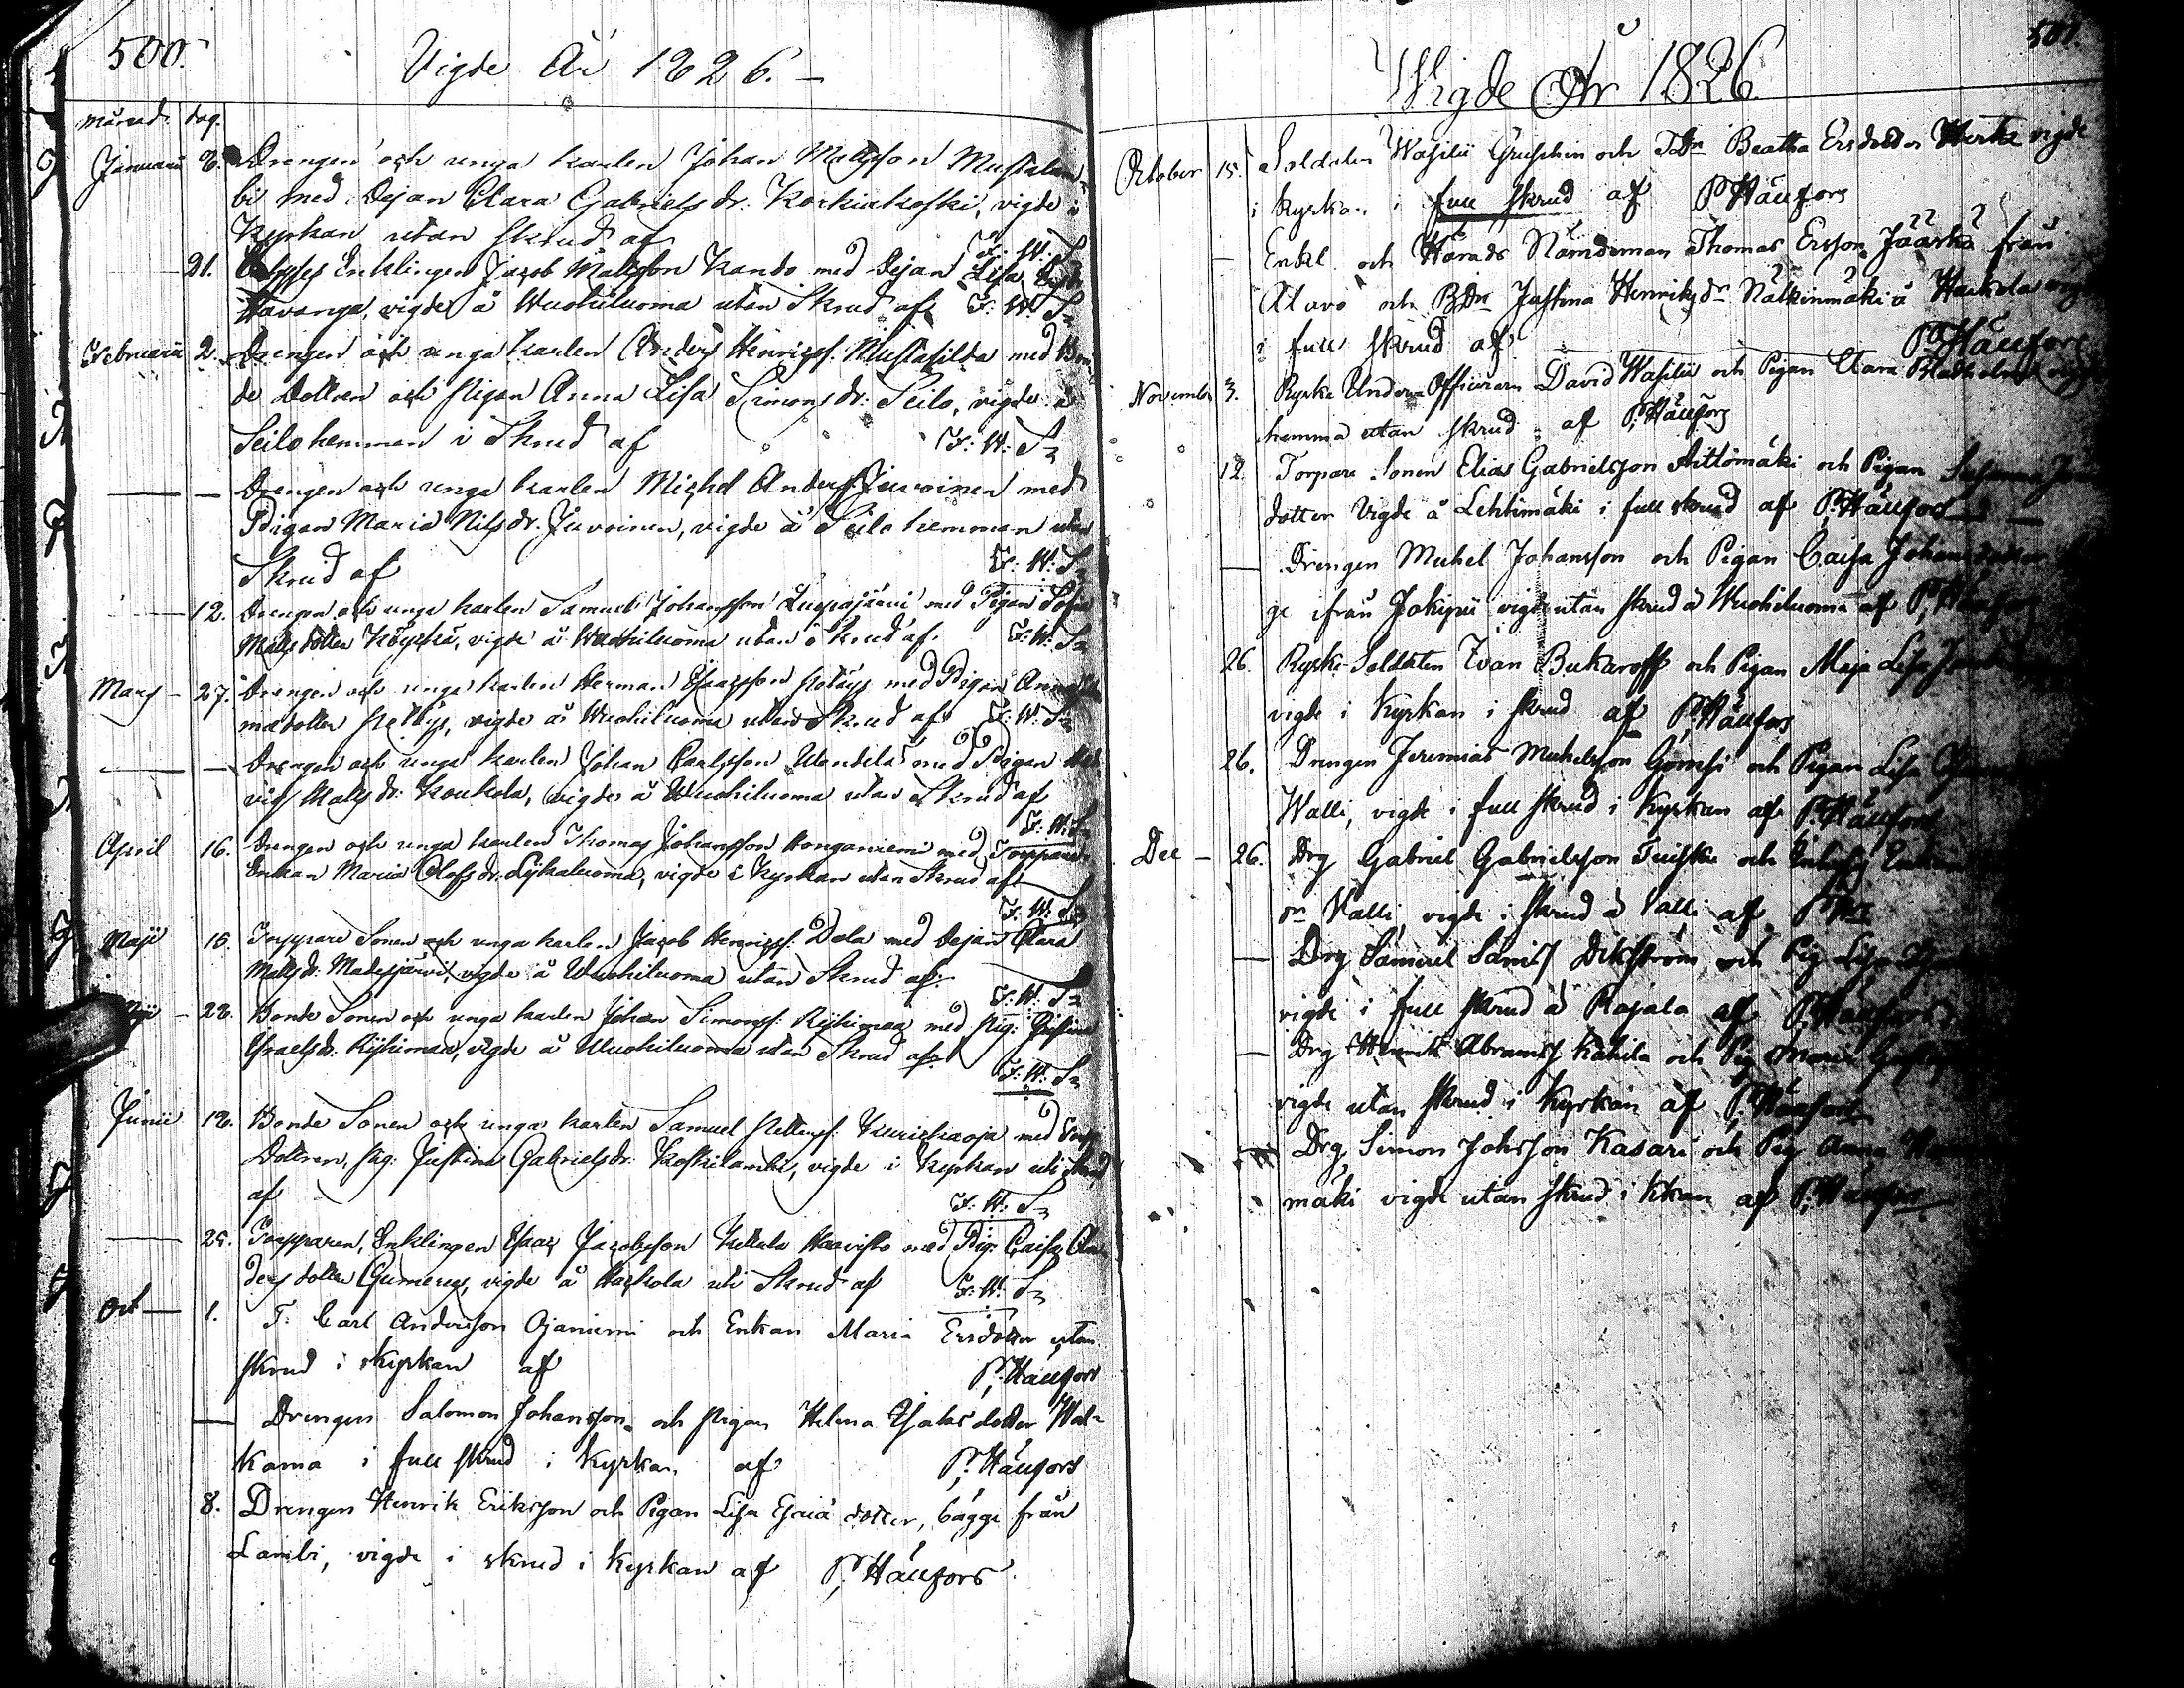 500.
Vigde År 1826. –
månad. dag.
Januarii 6. Drengen och unga karlen Johan Mattsson Mustalam-
bi med Pijan Clara Gabriels dr. Korkiakoski, vigde i
Kyrkan utan skrud af F: W: S
21. Enklingen Jacob Mattsson Kando med Pijan Lisa
Havanga, vigde å Wuohiluoma utan Skrud af F: W: S
Februarii 2. Drengen och unga karlen Anders Henricss. Mustasilda med Bon-
de Dottren och Pigan Anna Lisa Simons dr. Seilo, vigde å
Seilo hemman i Skrud af F: W: S
— — Drengen och unga karlen Michel Anderss. Juvoinen med
Pigan Maria Nils dr. Juvoinen, vigde å Seilo hemman utan
Skrud af F: W: S
12. Drengen och unga karlen Samuel Johansson Luopajärvi med Pigan Sofia
Matts dotter Köykkä, vigde å Wuohiluoma utan skrud af. F: W: S
Mars – 27. Drengen och unga karlen Herman Esaiasson med Pigan
vigde å Wuohiluoma utan Skrud af F: W: S
— — Drengen och unga karlen Johan Carlsson Mandela med Pigan Hed-
vig Matts dr. Koukola, vigde å Wuohiluoma utan Skrud af
F: W: S
April 16. Drengen och unga karlen Thomas Johansson Honganiemi med Torppare
Enkan Maria Olofs dr. Lykaluoma, vigde i Kyrkan utan Skrud af
F: W: S
Maji 15. Torppare Sonen och unga karlen Jacob Henricss. Dola med Pejan Clara
Matts dr. Madesjärvi, vigde å Wuohiluoma utan Skrud af.
F: W: S
28. Bonde Sonen och unga karlen Johan Simonss. Rijhimaa med Pig: Justina
Israels dr. Rijhimaa, vigde å Wuohiluoma utan Skrud af.
F: W: S
Junii 18. Bonde Sonen och unga karlen Samuel Kurickaoja med
Dottren, Pig: Justina Gabriels dr. Koskilambi, vigde i Kyrkan uti skrud
af F: W: S
— 25. Torpparen, Enklingen Esaias Jacobsson Kettula Harvisto med Pig: Caisa An-
ders dotter Gumerus, vigde å Harkola uti Skrud af F: W: S
Oct — 1. T. Carl Andersson Ojaniemi och Enkan Maria Ersdotter utan
skrud i Kyrkan af P. Hällfors
— Drengen Salomon Johansson och Pigan Helena Esaias dotter Wal-
kama i full skrud i Kyrkan af P. Hällfors
8. Drengen Henrik Eriksson och Pigan Lisa Esaiædotter, bägge från
Lambi, vigde i skrud i Kyrkan af P. Hällfors
501.
Wigde År 1826
October 15. Soldaten Wasilii Gruschin och TDr Beatha Ersdotter vigde
i Kyrkan i full skrud af P. Hällfors
— Enkl. och Härads Nämdeman Thomas Ersson Jäärkä från
Alavo och BDr Justina Henriksdr Nälkinmäki å Harkola
i full skrud af P. Hällfors
November 3. Ryska Under Officeren David Wasilii och Pigan Clara
hemma utan skrud af P. Hällfors
12. Torpare Sonen Elias Gabrielsson Aittomäki och Pigan Susanna
dotter Vigde å Lehtimäki i full skrud af P. Hällfors
— Drengen Michel Johansson och Pigan Caisa Johans
ge ifrån Jokipii vigde utan skrud å Wuohiluoma af P. Hällfors
26. Ryske Soldaten Ivan Bukaroff och Pigan Maja Lisa
vigde i Kyrkan i skrud af P. Hällfors
26. Drengen Jeremias Michelsson Gömsi och Pigan Lisa
Walli, vigde i full skrud i Kyrkan af P. Hällfors
Dec – 26. Drg Gabriel Gabrielsson Tuiska och
Valli vigde i skrud å Valli af
— Drg Samuel Sams. Dikström och Pig Lisa
vigde i full skrud å Rajala af P. Hällfors
— Drg Henrik Abramss Kahila och Pig Maria
vigde utan skrud i Kyrkan af P. Hällfors
Drg Simon Johsson Kasari och Pig Anna
mäki vigde utan skrud i Kkan af P. Hällfors